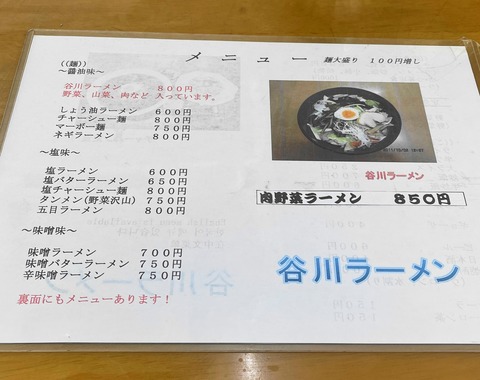 メニュー 麺大盛り 100円増し
((麺))
～醤油味～
谷川ラーメン 800円
野菜、山菜、肉など 入っています。
しょう油ラーメン 600円
チャーシュー麺 800円
マーボー麺 750円
ネギラーメン 800円
～塩味～
塩ラーメン 600円
塩バターラーメン 650円
塩チャーシュー麺 800円
タンメン(野菜沢山) 750円
五目ラーメン 800円
～味噌味～
味噌ラーメン 700円
味噌バターラーメン 750円
辛味噌ラーメン 750円
裏面にもメニューあります!
谷川ラーメン
肉野菜ラーメン 850円
谷川ラーメン